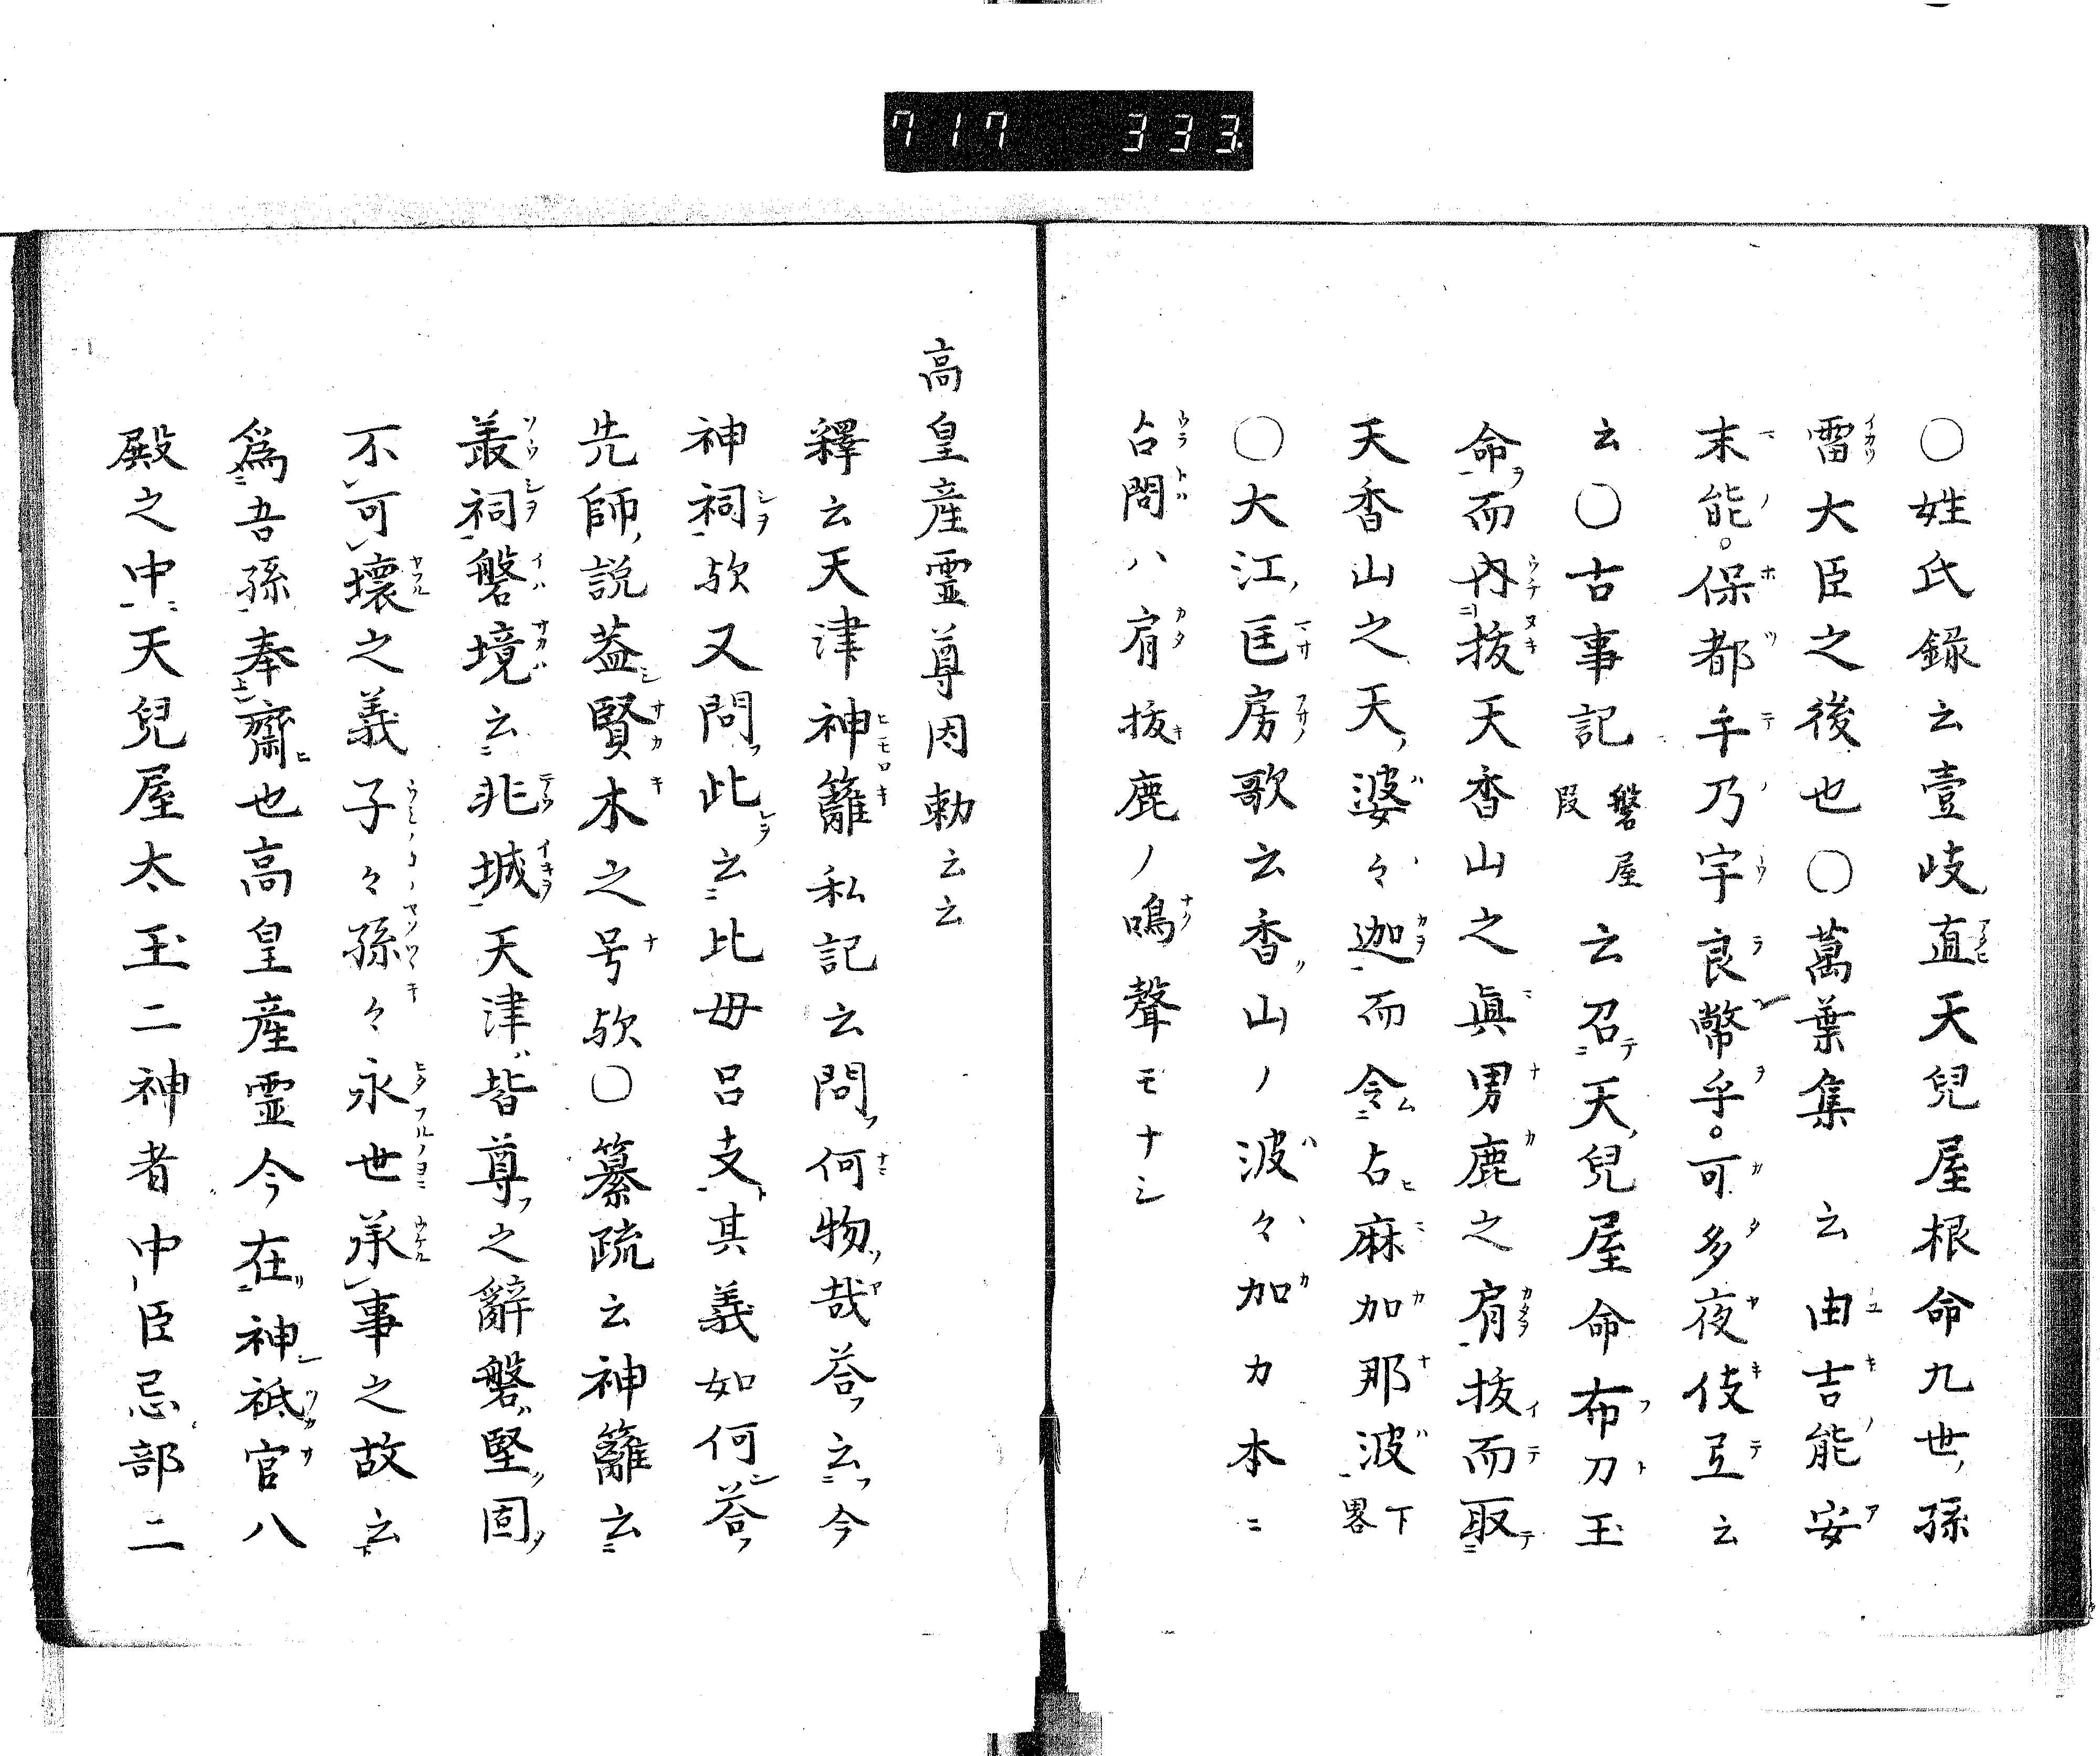 717 333
○姓氏録云壹岐直天兒屋根命九世孫
雷大臣之後也○萬葉集 云由吉能安
末能保都手乃宇良幣乎可多夜伎弖云
云○古事記 磐屋段 云召天兒屋命布刀玉
命而内抜天香山之眞男鹿之肩抜而取
天香山之天婆々迦而令占麻加那波 下畧
○大江匡房歌云香山ノ波々加カ本ニ
占問ハ肩抜鹿ノ鳴聲モナシ
高皇産霊尊因勅云云
釋云天津神籬私記云問何物哉荅云今
神祠欤又問此云比毋呂支其義如何荅
先師説葢賢木之号欤○纂疏云神籬云
叢祠磐境云兆城天津皆尊之辭磐堅固
不可壞之義子々孫々永世承事之故云
爲吾孫奉齋也高皇産霊今在神祇官八
殿之中天兒屋太玉二神者中臣忌部二